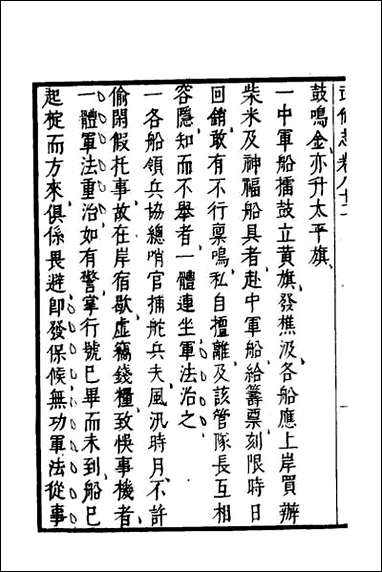 武備志卷八十二
鼓鳴金亦升太平旗
一中軍船擂鼓立黃旗發樵汲各船應上岸買辦
柴米及神福船具者赴中軍船給籌票刻限時日
回銷敢有不行稟鳴私自擅離及該管隊長互相
容隱知而不舉者一體連坐軍法治之
一各船領兵協總哨官捕舵兵夫風汛時月不許
偷閑假托事故在岸宿歇虛竊錢糧致悮事機者
一體軍法重治如有警掌行號已畢而未到船已
起椗而方來俱係畏避卽發保候無功軍法從事